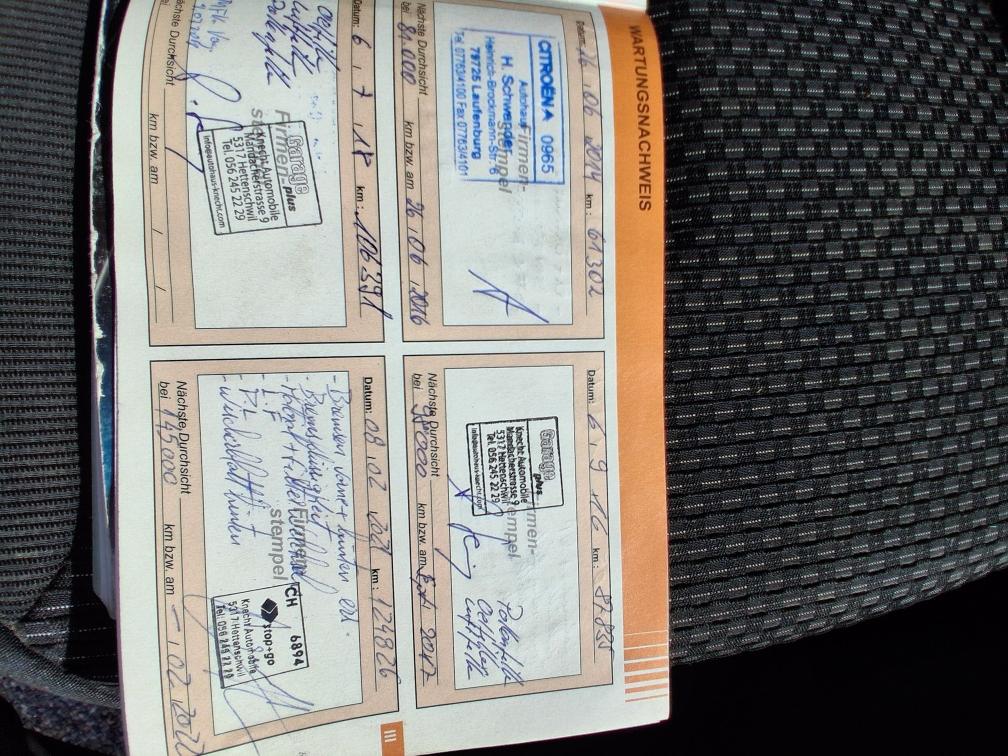 WARTUNGSNACHWEIS
Datum: 26 . 06 . 2014 km : 61302
Firmen-
stempel
CITROËN 0965
Autohaus
H. Schwender
Heinrich-Brockmann-Str. 6
79725 Laufenburg
Tel. 07763/4100 Fax 07763/4101
Nächste Durchsicht
bei 81.000 km bzw. am 26 . 06 . 2016
Datum: 6 . 9 . 16 km : 87.835
Garage
plus
Knecht Automobile
Mandacherstrasse 9
5317 Hettenschwil
Tel. 056 245 22 29
info@autohaus-knecht.com
Pollenfilter
Oelfilter
Luftfilter
Nächste Durchsicht
bei km bzw. am Sept 2017
Datum: 6 . 7 . 18 km : 106391
Oelfilter
Luftfilter
Pollenfilter
Firmen-
stempel
Garage
plus
Knecht Automobile
Mandacherstrasse 9
5317 Hettenschwil
Tel. 056 245 22 29
info@autohaus-knecht.com
Nächste Durchsicht
bei km bzw. am / /
Datum: 08 . 02 . 2021 km : 124826
- Bremsen vorne + hinten ern.
- Bremsflüssigkeit
- LF
Firmen-
stempel
CH 6894
stop+go
Knecht Automobile
5317 Hettenschwil
Tel. 056 245 22 29
Nächste Durchsicht
bei 145000 km bzw. am - . 02 . 2022
III